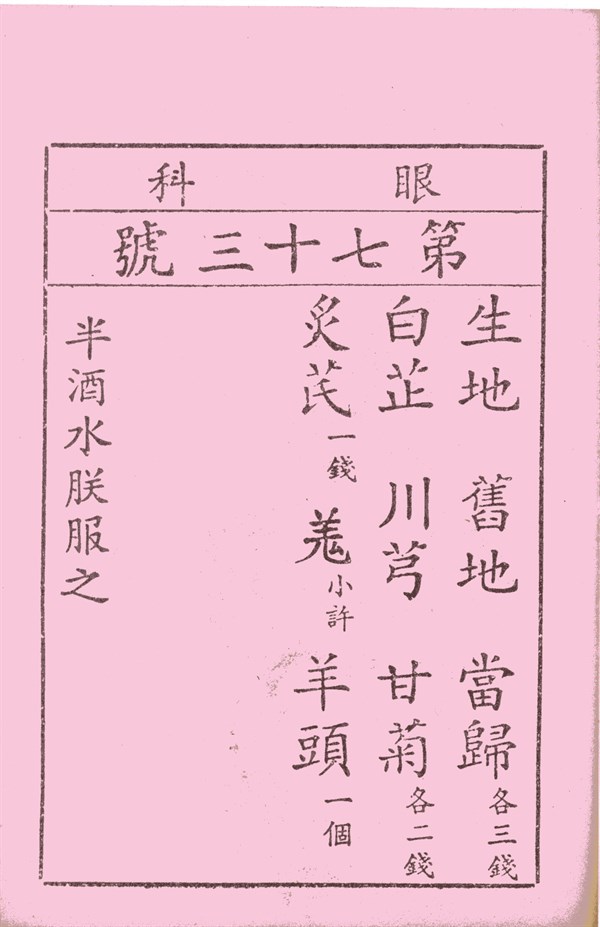 眼科
第七十三號
生地 舊地 當歸各三錢
白芷 川芎 甘菊各二錢
炙芪一錢 羗小許 羊頭一個
半酒水朕服之